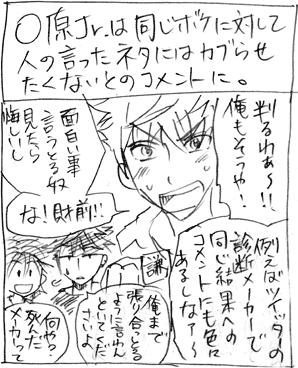 〇原Jr.は同じボケに対して
人の言ったネタにはカブらせ
たくないとのコメントに。
判るわぁ〜!!
俺もそうや!
面白い事
言うとる奴
見たら
悔しいし
な!財前!!
例えばツイッターの
診断メーカーで
同じ結果への
コメントにも色々
あるしなァ〜
謙
俺まで
張り合っとる
ように言わん
といてくだ
さいよ
何や?
死んだ
メーカーって